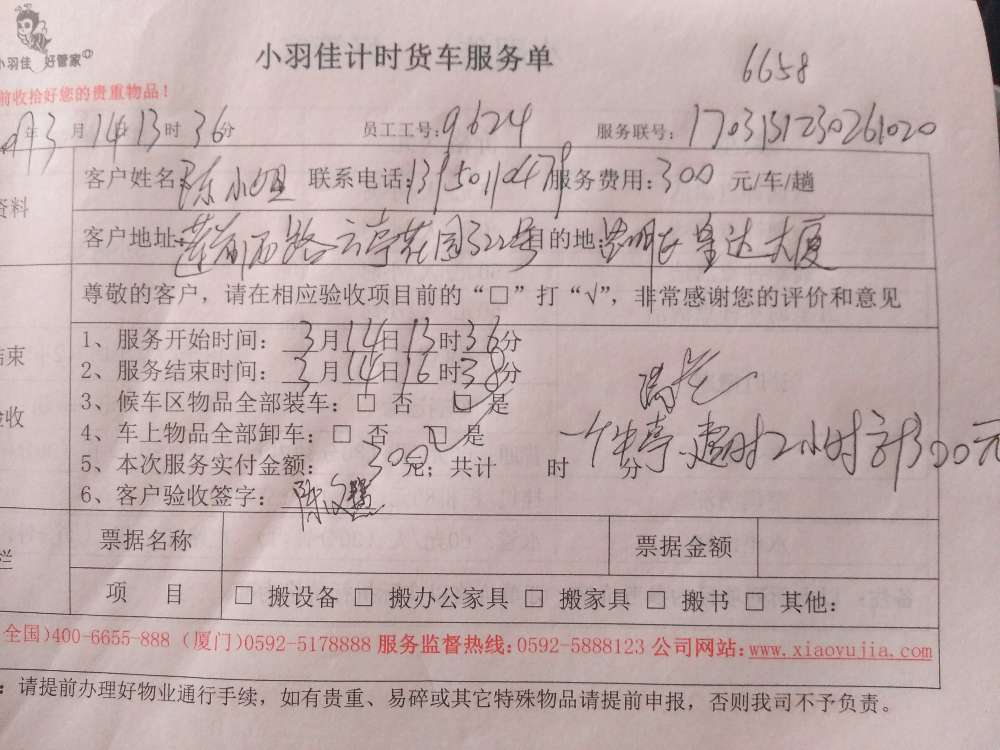 小羽佳 好管家
小羽佳计时货车服务单
6658
前收拾好您的贵重物品！
年3月14日13时36分 员工工号：9624 服务联号：1703131230261020
资料
客户姓名：陈小姐 联系电话：13950110479 服务费用：300 元/车/趟
客户地址：莲前西路云亭花园322号 目的地：皇达大厦
尊敬的客户，请在相应验收项目前的“□”打“√”，非常感谢您的评价和意见
结束
验收
1、服务开始时间：3月14日13时36分
2、服务结束时间：3月14日16时38分
3、候车区物品全部装车：□ 否 □ 是
4、车上物品全部卸车：□ 否 □ 是
5、本次服务实付金额：300元；共计 时 分
超时2小时 300元
6、客户验收签字：陈文慧
栏
票据名称 票据金额
项 目 □ 搬设备 □ 搬办公家具 □ 搬家具 □ 搬书 □ 其他：
全国)400-6655-888 (厦门)0592-5178888 服务监督热线：0592-5888123 公司网站：www.xiaoyujia.com
：请提前办理好物业通行手续，如有贵重、易碎或其它特殊物品请提前申报，否则我司不予负责。